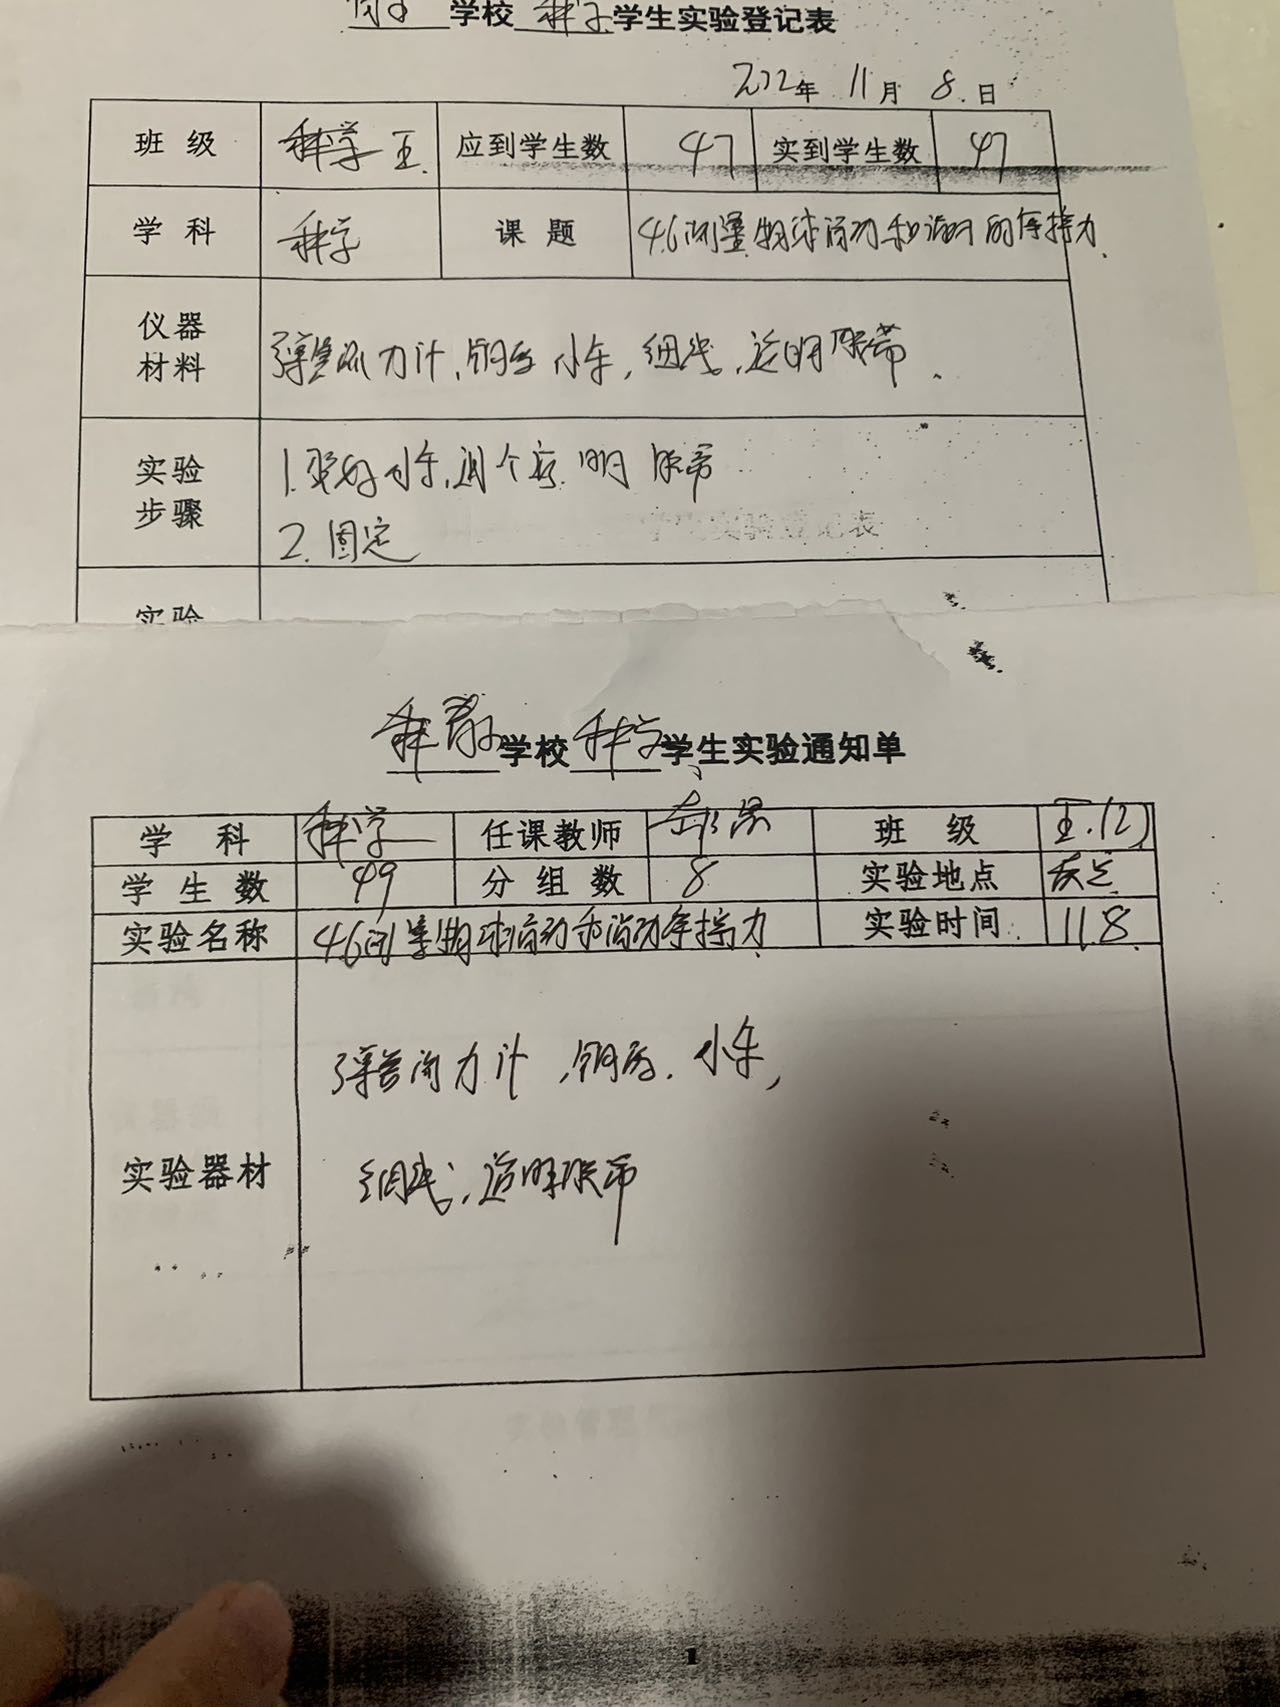 学校 科学 学生实验登记表
2022年 11月 8日
班级 科学 五 应到学生数 47 实到学生数 47
学科 科学 课题 4.6测量物体滚动和滑动的摩擦力
仪器材料 弹簧测力计，钩码 小车，细线，透明胶带
实验步骤 1.取好小车，用透明胶带
2.固定
实验
学校 科学 学生实验通知单
学科 科学 任课教师 班级 五.(2)
学生数 49 分组数 8 实验地点
实验名称 4.6测量物体滚动和滑动摩擦力 实验时间 11.8
弹簧测力计，钩码，小车，
实验器材 细线，透明胶带
1